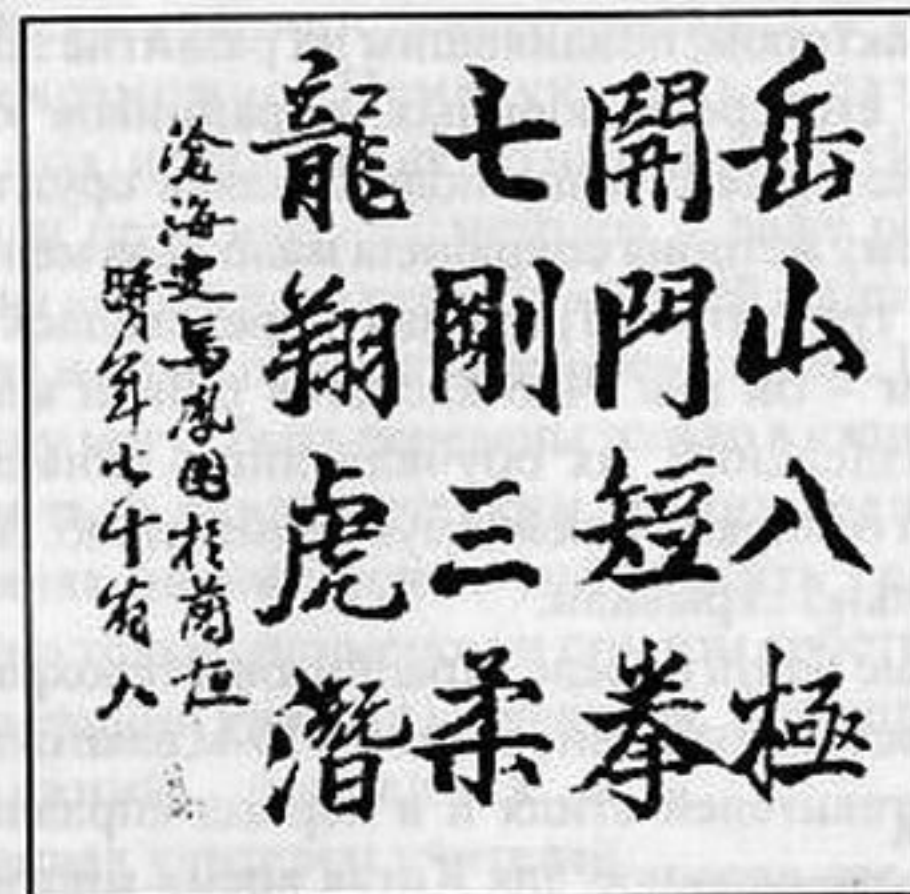 岳山八極
開門短拳
七剛三柔
龍翔虎潛
滄海叟馬鳳図於蘭垣
時年七十有八